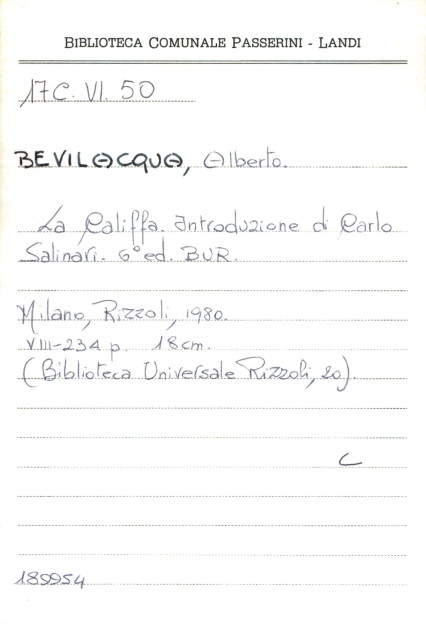 BIBLIOTECA COMUNALE PASSERINI - LANDI
17C. VI. 50
BEVILACQUA, Alberto.
La Califfa. Introduzione di Carlo
Salinari. 6° ed. BUR.
Milano, Rizzoli, 1980.
VIII-234 p. 18 cm.
(Biblioteca Universale Rizzoli, 20).
C
189954